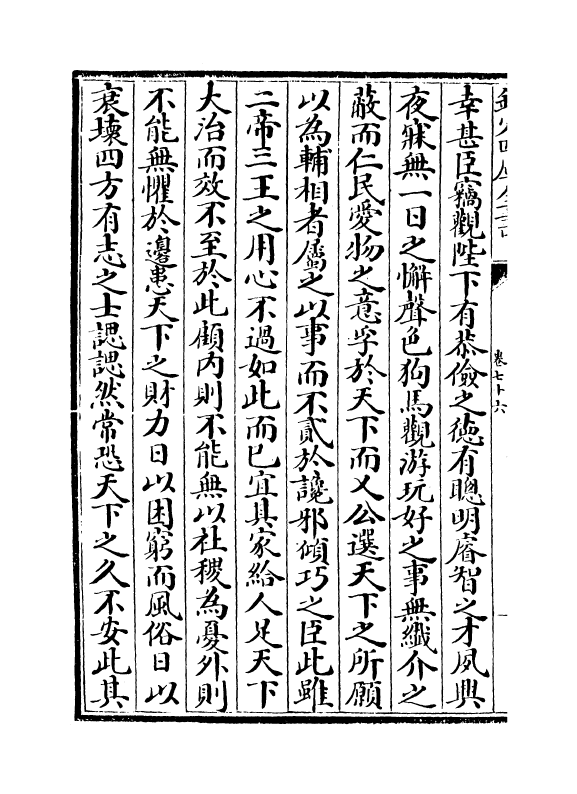 欽定四庫全書
卷七十六
幸甚臣竊觀陛下有恭儉之徳有聰明睿智之才夙興
夜寐無一日之懈聲色狗馬觀游玩好之事無纖介之
蔽而仁民愛物之意孚於天下而又公選天下之所願
以為輔相者屬之以事而不貳於讒邪傾巧之臣此雖
二帝三王之用心不過如此而已宜其家給人足天下
大治而效不至於此顧内則不能無以社稷為憂外則
不能無懼於邊患天下之財力日以困窮而風俗日以
衰壊四方有志之士諰諰然常恐天下之久不安此其